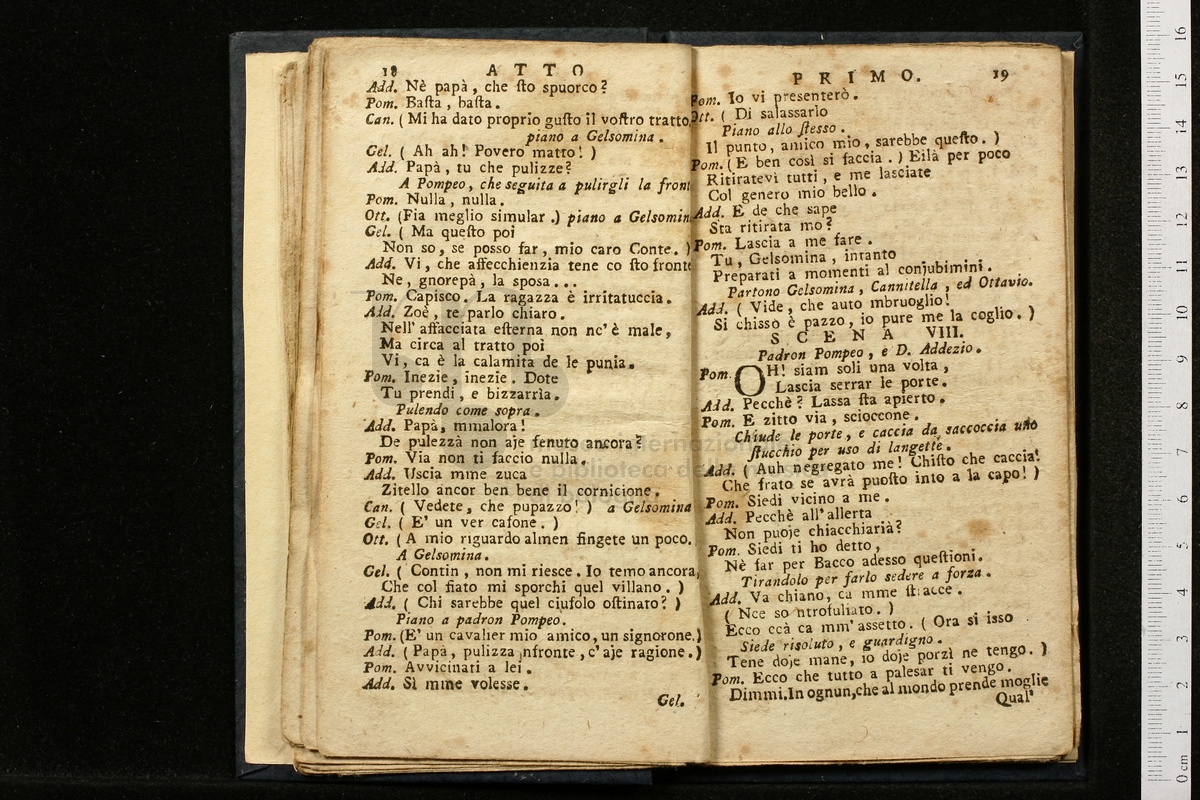 18 ATTO
Add. Nè papà, che ſto spuorco?
Pom. Baſta, baſta.
Can. ( Mi ha dato proprio guſto il voſtro tratto,
piano a Gelsomina.
Gel. ( Ah ah! Povero matto! )
Add. Papà, tu che pulizze?
A Pompeo, che seguita a pulirgli la front
Pom. Nulla, nulla.
Ott. (Fia meglio simular.) piano a Gelsomin
Gel. ( Ma queſto poi
Non so, se posso far, mio caro Conte. )
Add. Vi, che affecchienzia tene co ſto fronte
Ne, gnorepà, la sposa...
Pom. Capisco. La ragazza è irritatuccia.
Add. Zoè, te parlo chiaro.
Nell' affacciata eſterna non nc' è male,
Ma circa al tratto poi
Vi, ca è la calamita de le punia.
Pom. Inezie, inezie. Dote
Tu prendi, e bizzarrìa.
Pulendo come sopra.
Add. Papà, mmalora!
De pulezzà non aje fenuto ancora?
Pom. Via non ti faccio nulla.
Add. Uscia mme zuca
Zitello ancor ben bene il cornicione.
Can. ( Vedete, che pupazzo! ) a Gelsomina
Gel. ( E' un ver cafone. )
Ott. ( A mio riguardo almen fingete un poco.
A Gelsomina.
Gel. ( Contin, non mi riesce. Io temo ancora,
Che col fiato mi sporchi quel villano. )
Add. ( Chi sarebbe quel ciufolo oſtinato? )
Piano a padron Pompeo.
Pom. (E' un cavalier mio amico, un signorone.)
Add. ( Papà, pulizza nfronte, c'aje ragione.)
Pom. Avvicinati a lei.
Add. Sì mme volesse.
Gel.
PRIMO. 19
Pom. Io vi presenterò.
Ott. ( Di salassarlo
Piano allo ſtesso.
Il punto, amico mio, sarebbe queſto. )
Pom. ( E ben così si faccia. ) Eilà per poco
Ritiratevi tutti, e me lasciate
Col genero mio bello.
Add. E de che sape
Sta ritirata mo?
Pom. Lascia a me fare.
Tu, Gelsomina, intanto
Preparati a momenti al conjubimini.
Partono Gelsomina, Cannitella, ed Ottavio.
Add. ( Vide, che auto mbruoglio!
Si chisso è pazzo, io pure me la coglio. )
SCENA VIII.
Padron Pompeo, e D. Addezio.
Pom. OH! siam soli una volta,
Lascia serrar le porte.
Add. Pecchè? Lassa ſta apierto.
Pom. E zitto via, scioccone.
Chiude le porte, e caccia da saccoccia uno
ſtucchio per uso di langette.
Add. ( Auh negregato me! Chiſto che caccia!
Che frato se avrà puoſto into a la capo! )
Pom. Siedi vicino a me.
Add. Pecchè all'allerta
Non puoje chiacchiarià?
Pom. Siedi ti ho detto,
Nè far per Bacco adesso queſtioni.
Tirandolo per farlo sedere a forza.
Add. Va chiano, ca mme ſtracce.
( Nce so ntrofuliato. )
Ecco ccà ca mm' assetto. ( Ora si isso
Siede risoluto, e guardigno.
Tene doje mane, io doje porzì ne tengo. )
Pom. Ecco che tutto a palesar ti vengo.
Dimmi. In ognun, che al mondo prende moglie
Qual'